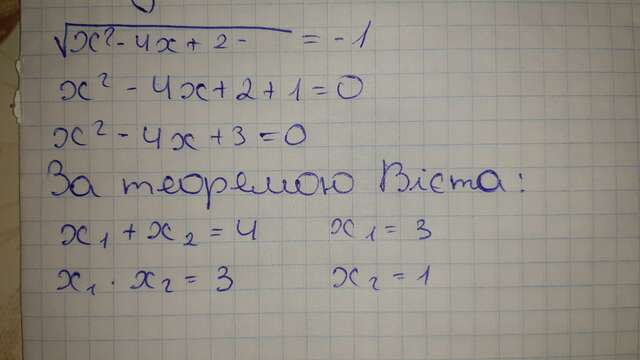 √x² - 4x + 2 - = - 1
x² - 4x + 2 + 1 = 0
x² - 4x + 3 = 0
За теоремою Вієта:
x₁ + x₂ = 4 x₁ = 3
x₁ · x₂ = 3 x₂ = 1